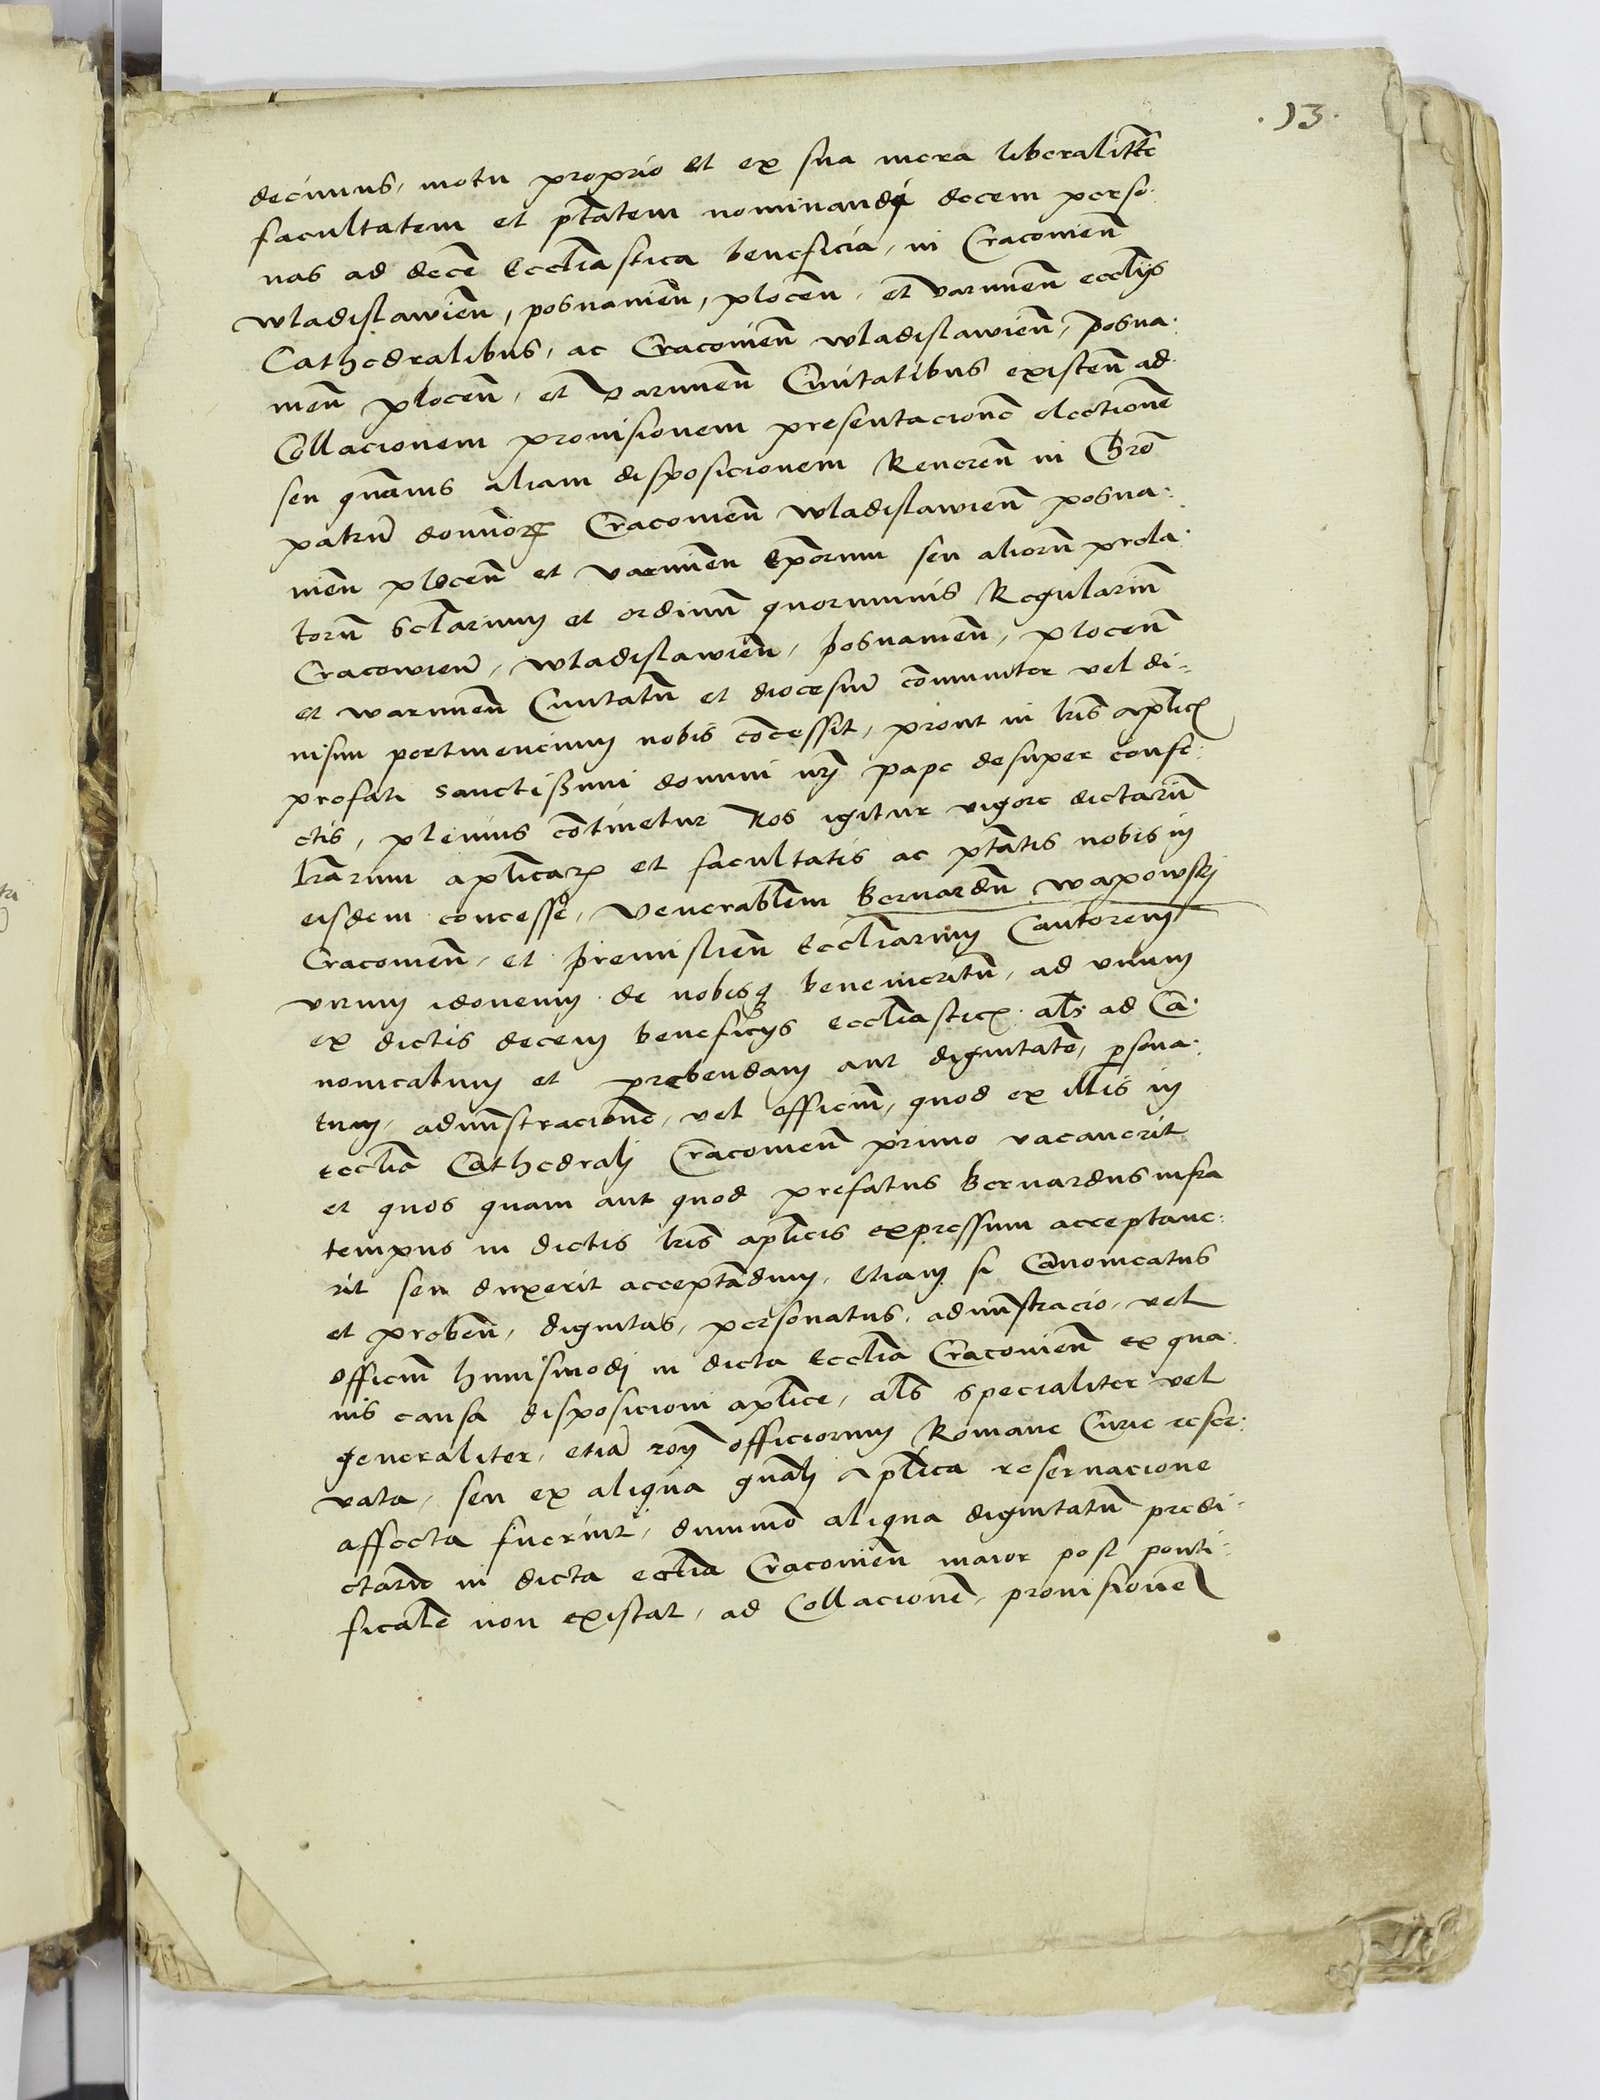 .13.
decimus, motu proprio et ex sua mera liberalitte
facultatem et ptatem nominandi decem perso.
nas ad decē Eccliastica beneficia, in Cracovien̄
wladislawien̄, posnanien̄, plocen̄, et varmien̄ eccliis
Cathedralibus, ac Cracovien̄ wladislawien̄, posna.
nien̄ plocen̄, et varmien̄ Civitatibus existen̄ ad
Collacionem provisionem presentacionē electionē
seu quāvis aliam disposicionem Reveren̄ in Chrō
patrū dominor Cracovien̄ wladislawien̄ posna:
nien̄ plocen̄ et varmien̄ Eporum seu aliorū prela:
torū sclarium et ordinū quorumvis Regulariū
Cracowien̄, wladislawien̄, posnanien̄, plocen̄
et warmien̄ Civitatū et diocesiū cōmuniter vel di-
visim pertinencium nobis cōcessit, prout in lris aplic
prefati sanctissimi domini nri pape desuper confe:
ctis, plenius cōtinetur Nos igitur vigore dictarū
lrarum aplicar et facultatis ac ptatis nobis in
eisdem concesse, venerablem Bernardū wapowskj
Cracovien̄, et premislien̄ Eccliarum Cantorem
virum idoneum de nobisq benemeritū, ad unum
ex dictis decem beneficijs eccliastic. als ad Ca:
nonicatum et prebendam aut dignitatē, persona:
tum, adminstracionē, vel officiū, quod ex illis in
ecclia Cathedralj Cracovien̄ primo vacaverit
et quos quam aut quod prefatus Bernardus infra
tempus in dictis lris aplicis expressum acceptave:
rit seu duxerit acceptādum, Etiam si Canonicatus
et preben̄, dignitas, personatus, adminstracio, vel
officiū huiusmodj in dicta Ecclia Cracovien̄ ex qua
vis causa disposicioni aplice, als specialiter vel
generaliter, etiā roñ officiorum Romane Curie reser:
vata, seu ex aliqua gnalj aplica reservacione
affecta fuerint, dummō aliqua dignitatū predi:
ctarū in dicta ecclia Cracovien̄ maior post ponti:
ficalē non existat, ad Collacionē, provisionē